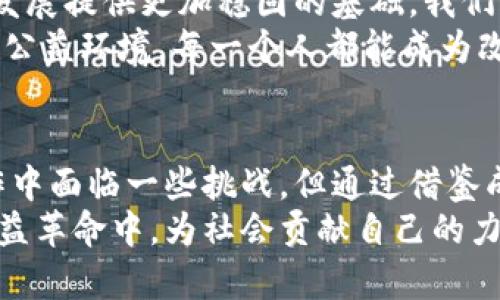 发展提供更加稳固的基础。我们
公益环境，每一个人都能成为改
What happened to Bitcoin
作中面临一些挑战，但通过借鉴
益革命中，为社会贡献自己的力
9